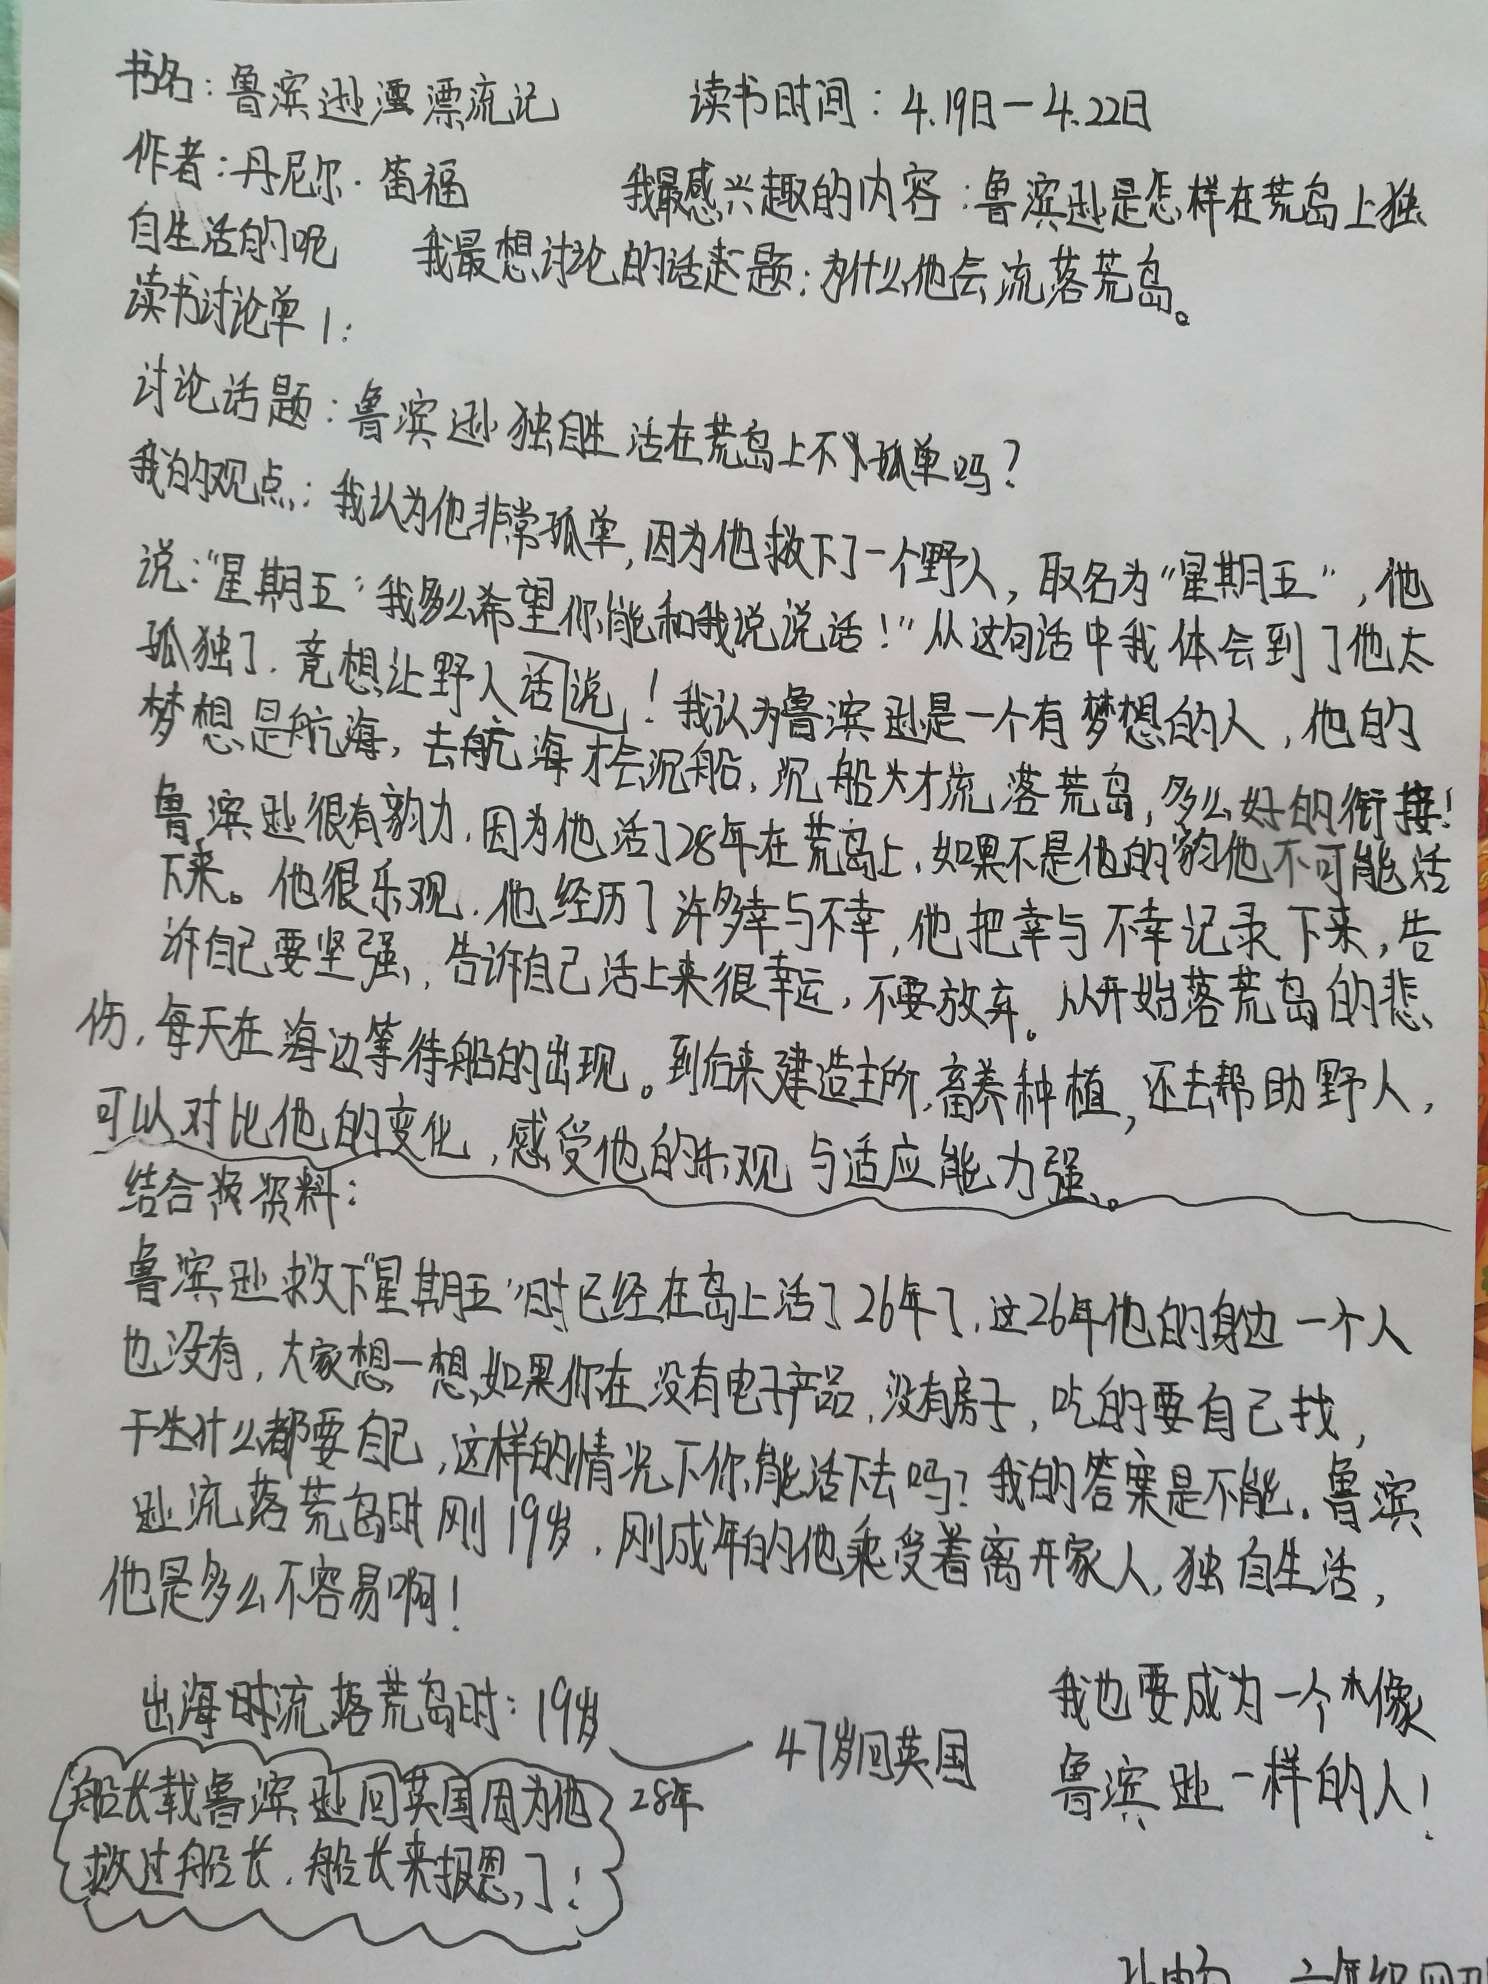 书名：鲁滨逊漂流记 读书时间：4.19日—4.22日
作者：丹尼尔·笛福 我最感兴趣的内容：鲁滨逊是怎样在荒岛上独
自生活的呢 我最想讨论的话题：为什么他会流落荒岛。
读书讨论单1：
讨论话题：鲁滨逊独自生活在荒岛上不孤单吗？
我的观点：我认为他非常孤单，因为他救下了一个野人，取名为“星期五”，他
说：“星期五”我多么希望你能和我说说话！”从这句话中我体会到了他太
孤独了，竟想让野人话说！我认为鲁滨逊是一个有梦想的人，他的
梦想是航海，去航海才会沉船，沉船才流落荒岛，多么好的衔接！
鲁滨逊很有毅力，因为他活了28年在荒岛上，如果不是他的 他不可能活
下来。他很乐观，他经历了许多幸与不幸，他把幸与不幸记录下来，告
诉自己要坚强，告诉自己活上来很幸运，不要放弃。从开始落荒岛的悲
伤，每天在海边等待船的出现。到后来建造主所，畜养种植，还去帮助野人，
可以对比他的变化，感受他的乐观与适应能力强。
结合资料：
鲁滨逊救下“星期五”时已经在岛上活了26年了，这26年他的身边一个人
也没有，大家想一想，如果你在没有电子产品，没有房子，吃的要自己找，
干什么都要自己，这样的情况下你能活下去吗？我的答案是不能。鲁滨
逊流落荒岛时刚19岁，刚成年的他乘受着离开家人，独自生活，
他是多么不容易啊！
出海时流落荒岛时：19岁
28年
47岁回英国
我也要成为一个像
鲁滨逊一样的人！
船长载鲁滨逊回英国因为他
救过船长，船长来报恩了！